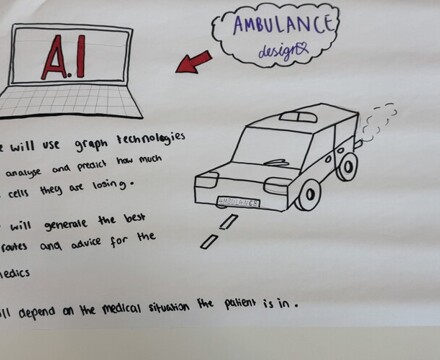 AMBULANCE
designer
A.I
e will use graph technologies
analyse and predict how much
cells they are losing.
will generate the best
routes and advice for the
medics
ll depend on the medical situation the patient is in.
AMBULANCE